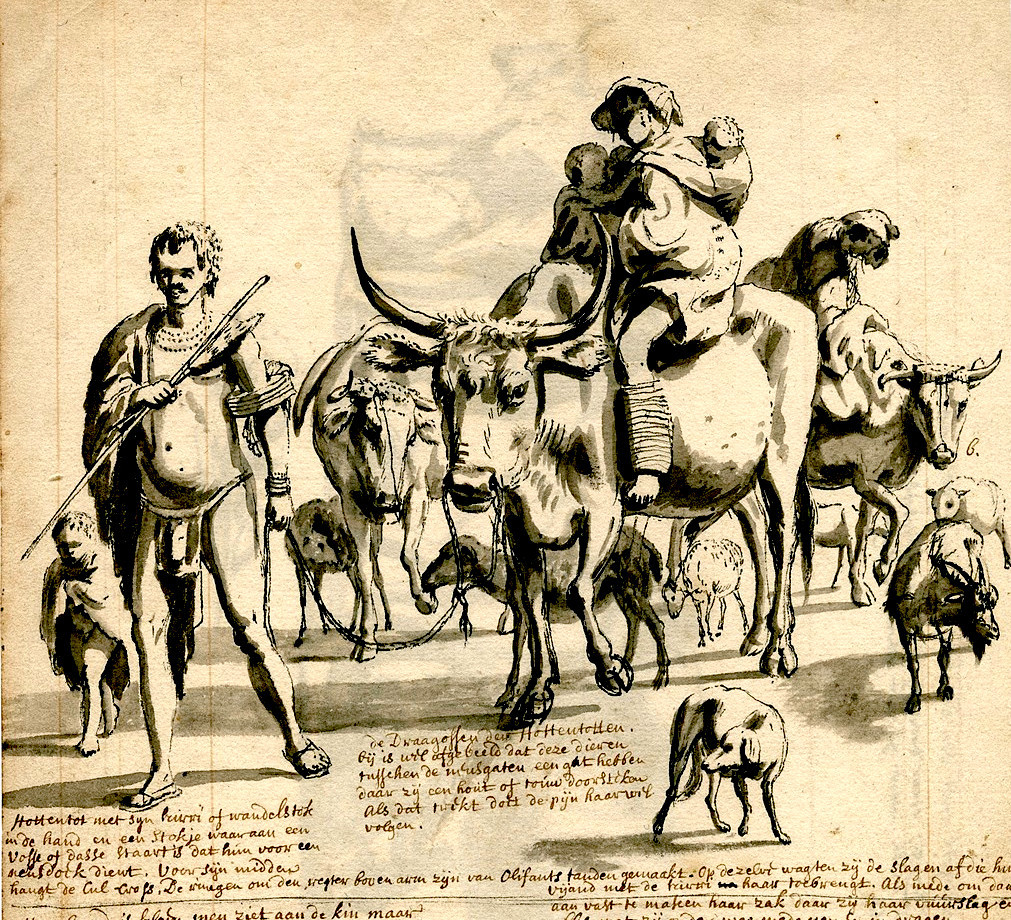 6.
de Draagossen der Hottentotten.
bij is wel afgebeeld dat deze dieren
tusschen de neusgaten een gat hebben
daar zij een hout of touw doorsteken
Als dat trekt doet de pijn haar wel
volgen.
Hottentot met syn kirri of wandelstok
in de hand en een stokje waar aan een
Vosse of dasse staart is dat hem voor een
neusdoek dient. Voor sijn midden
hangt de Cul Cross. De ringen om den regter boven arm zyn van Olifants tanden gemaakt. Op dezelve wagten zij de slagen af die hu
vijand met de kirri haar toebrengt. Als mede om daar
aan vast te maken haar zak daar zij haar vuurslag en
men ziet aan de kin maar